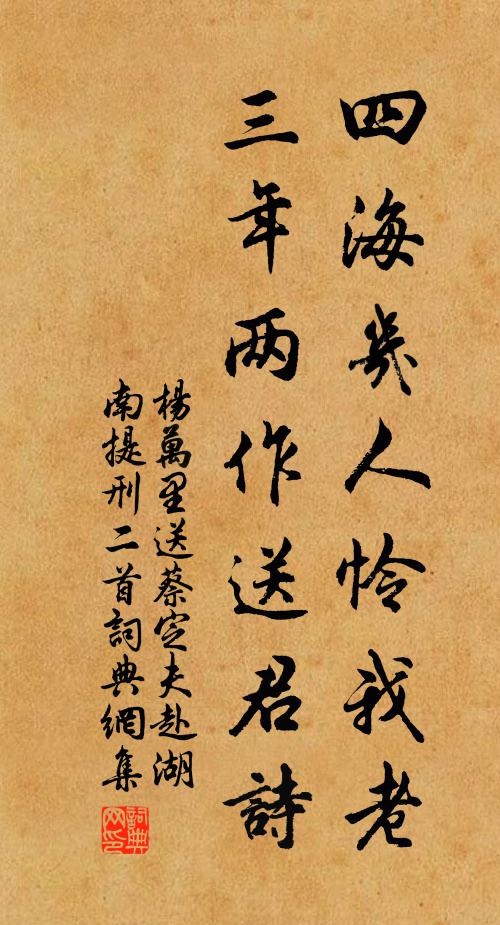 四海幾人怜我老
三年两作送君詩
楊萬里送蔡定夫赴湖
南提刑二首詞典網集
詞典
网印